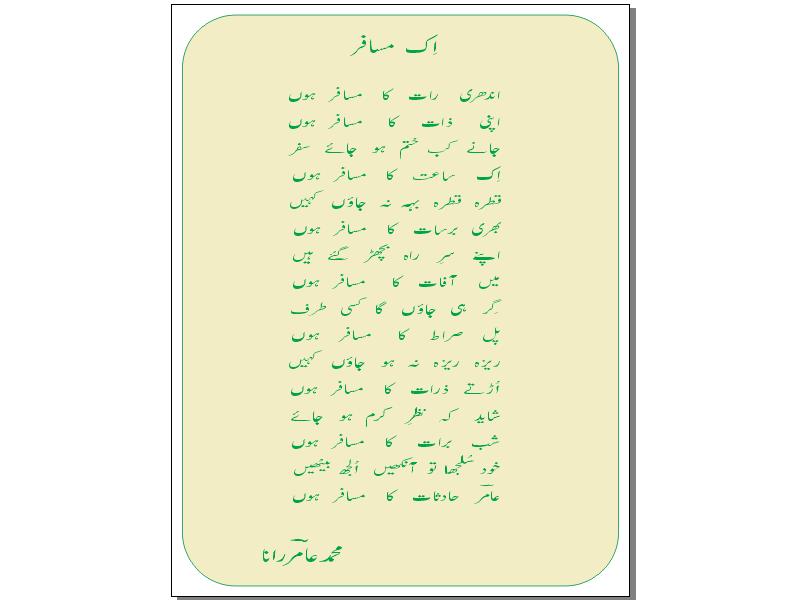 اِک مسافر
اندھری رات کا مسافر ہوں
اپنی ذات کا مسافر ہوں
جانے کب ختم ہو جائے سفر
اِک ساعت کا مسافر ہوں
قطرہ قطرہ بہہ نہ جاؤں کہیں
بھری برسات کا مسافر ہوں
اپنے سرِ راہ بچھڑ گئے ہیں
میں آفات کا مسافر ہوں
گِر ہی جاؤں گا کسی طرف
پل صراط کا مسافر ہوں
ریزہ ریزہ نہ ہو جاؤں کہیں
اُڑتے ذرات کا مسافر ہوں
شاید کہ نظرِ کرم ہو جائے
شب برات کا مسافر ہوں
خود سُلجھا تو آنکھیں اُلجھ بیٹھیں
عامر حادثات کا مسافر ہوں
محمد عامر رانا